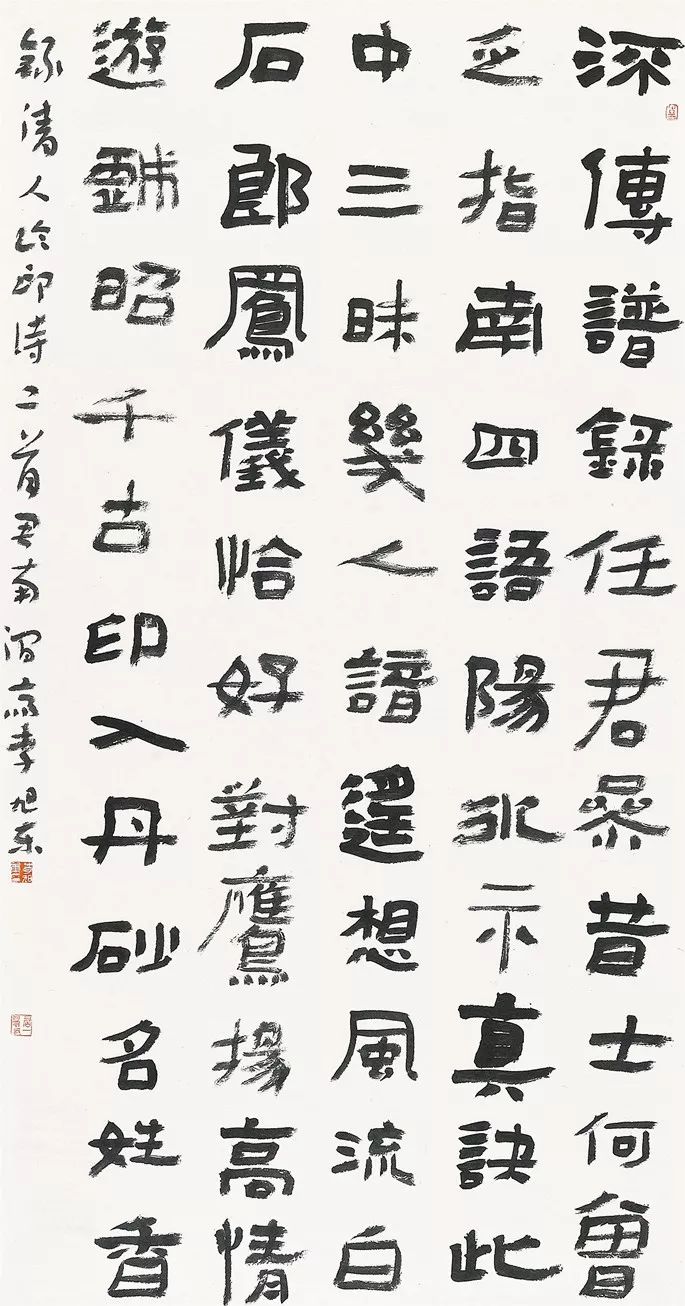 深傳譜錄任君參昔士何曾
乏指南四語陽冰示真訣此
中三昧幾人諳遥想風流白
石郎鳳儀恰好對鷹揚高情
遊昭千古印入丹砂名姓香
錄清人论印詩二首李旭东